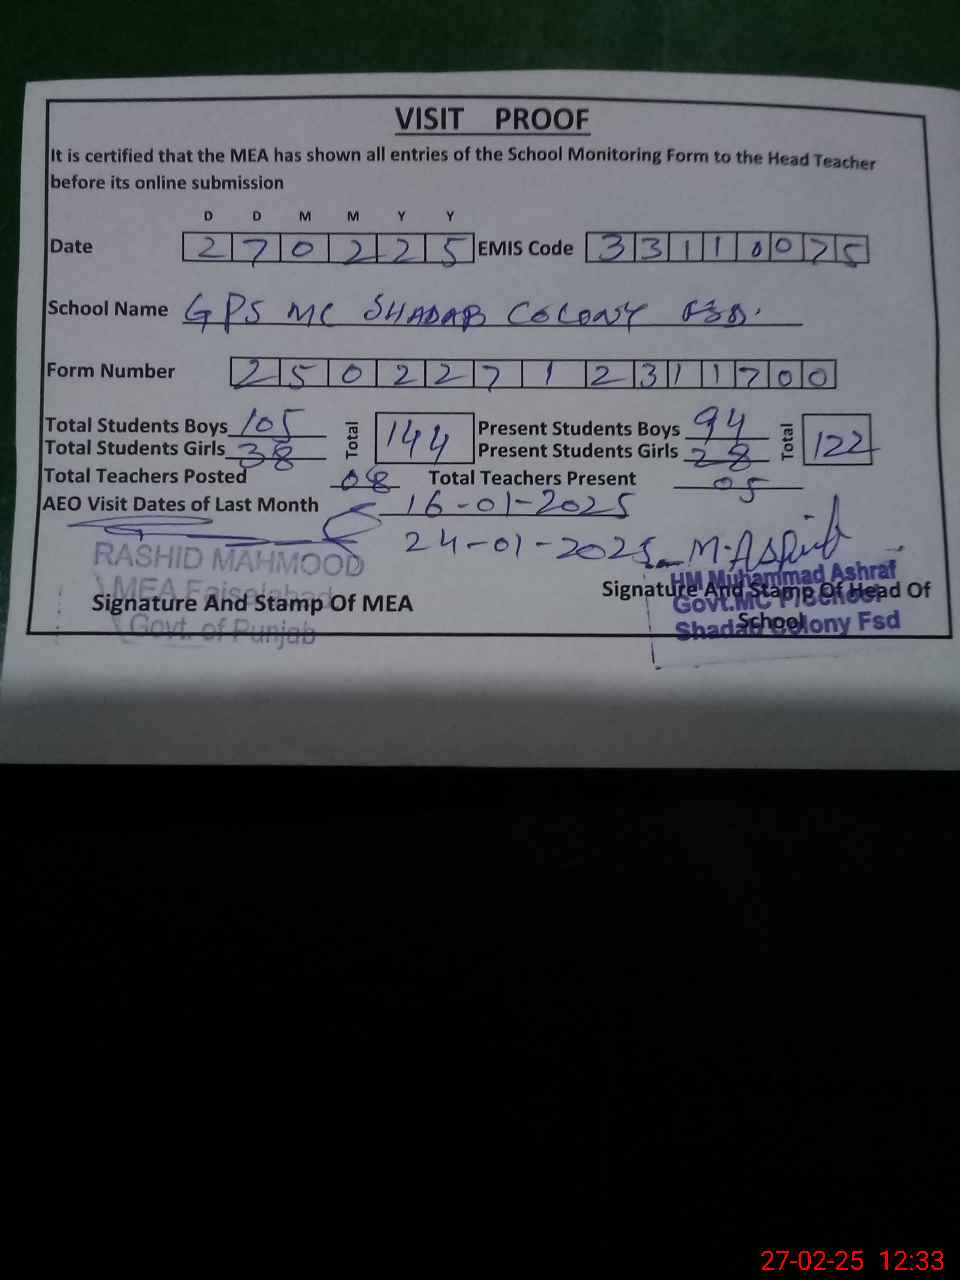 VISIT PROOF
It is certified that the MEA has shown all entries of the School Monitoring Form to the Head Teacher
before its online submission
D D M M Y Y
Date 2 7 0 2 2 5 EMIS Code 3 3 1 1 0 0 7 5
School Name GPS MC SHADAB COLONY FSD.
Form Number 2 5 0 2 2 7 1 2 3 1 1 7 0 0
Total Students Boys 105 Total 144 Present Students Boys 94 Total 122
Total Students Girls 38 Present Students Girls 28
Total Teachers Posted 08 Total Teachers Present 05
AEO Visit Dates of Last Month 16-01-2025
24-01-2025 M.Ashraf
RASHID MAHMOOD
MEA Faisalabad
Govt. of Punjab
Signature And Stamp Of MEA
HM Muhammad Ashraf
Govt.MC P/School
Shadab Colony Fsd
Signature And Stamp Of Head Of
School
27-02-25 12:33